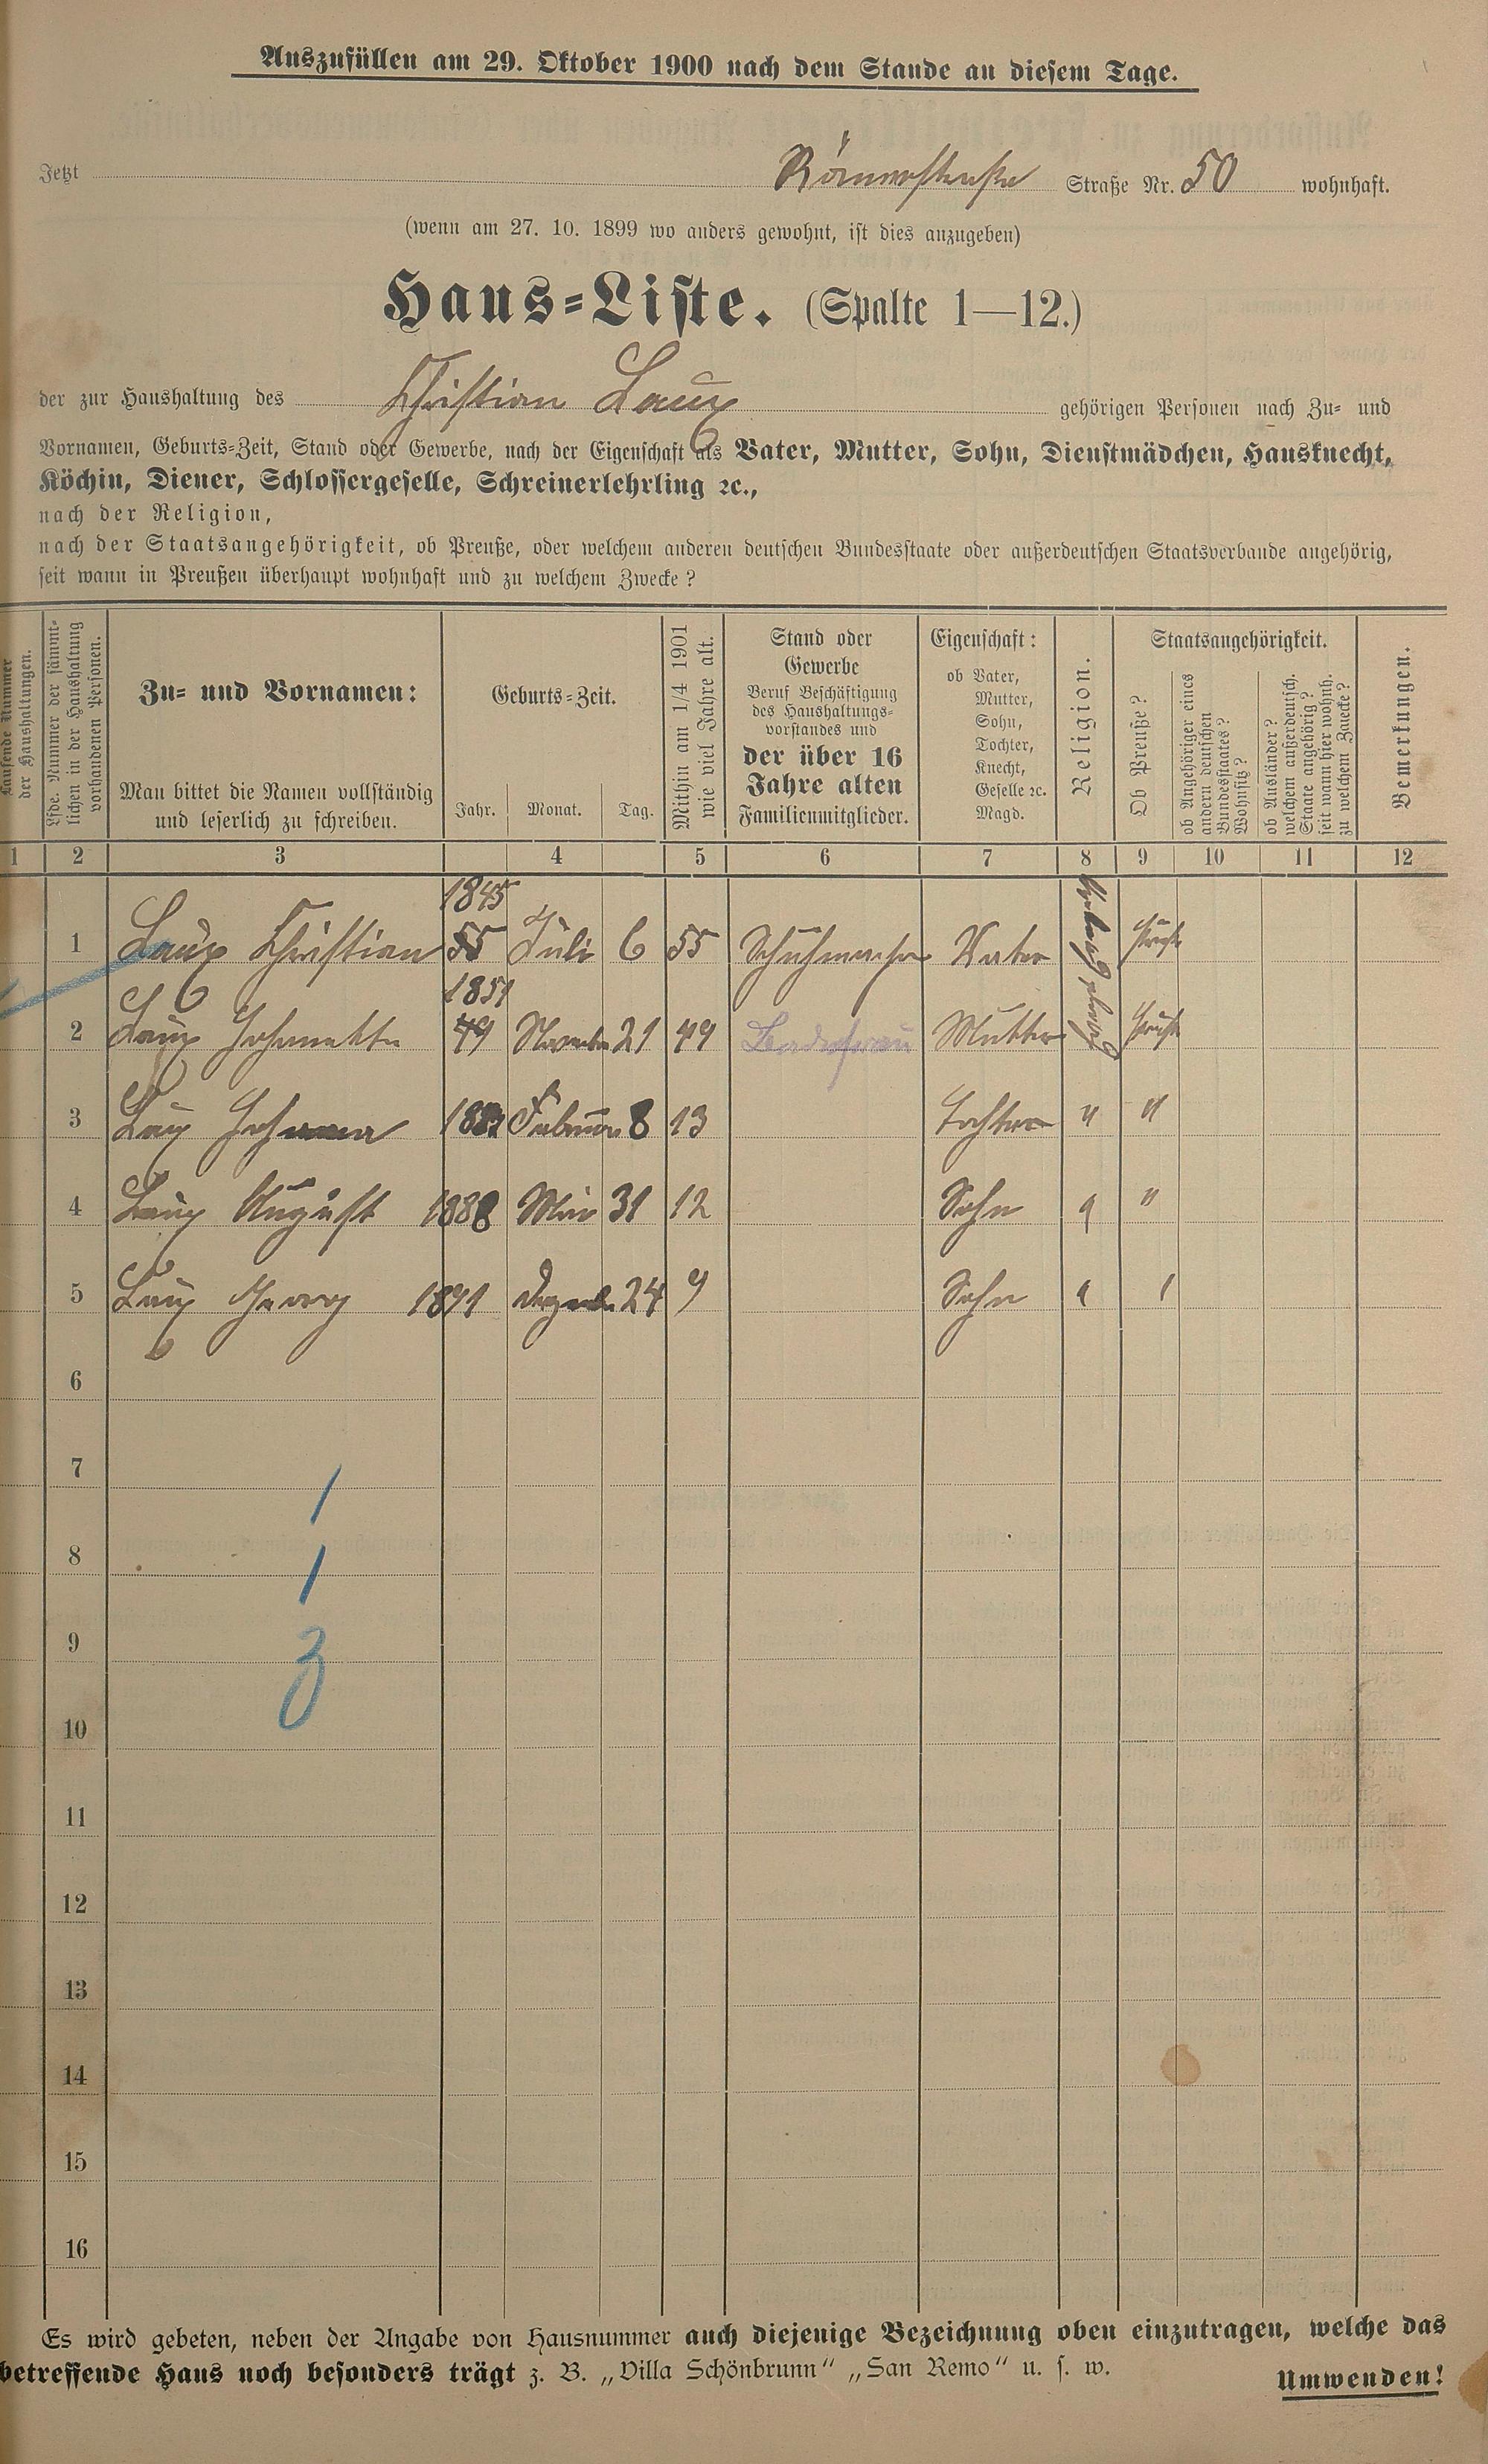 Auszufüllen am 29. Oktober 1900 nach dem Stande an diesem Tage.
Jetzt Römerstraße Straße Nr. 50 wohnhaft.
(wenn am 27. 10. 1899 wo anders gewohnt, ist dies anzugeben)
Haus-Liste. (Spalte 1—12.)
der zur Haushaltung des Christian Laux gehörigen Personen nach Zu- und
Vornamen, Geburts-Zeit, Stand oder Gewerbe, nach der Eigenschaft als Vater, Mutter, Sohn, Dienstmädchen, Hausknecht,
Köchin, Diener, Schlossergeselle, Schreinerlehrling ꝛc.,
nach der Religion,
nach der Staatsangehörigkeit, ob Preuße, oder welchem anderen deutschen Bundesstaate oder außerdeutschen Staatsverbande angehörig,
seit wann in Preußen überhaupt wohnhaft und zu welchem Zwecke?
Laufende Nummer
der Haushaltungen.
Lfde. Nummer der sämmt-
lichen in der Haushaltung
vorhandenen Personen.
Zu- und Vornamen:
Man bittet die Namen vollständig
und leserlich zu schreiben.
Geburts-Zeit.
Jahr. Monat. Tag.
Mithin am 1/4 1901
wie viel Jahre alt.
Stand oder
Gewerbe
Beruf Beschäftigung
des Haushaltungs-
vorstandes und
der über 16
Jahre alten
Familienmitglieder.
Eigenschaft:
ob Vater,
Mutter,
Sohn,
Tochter,
Knecht,
Geselle ꝛc.
Magd.
Religion.
Staatsangehörigkeit.
Ob Preuße?
ob Angehöriger eines
andern deutschen
Bundesstaates?
Wohnsitz?
ob Ausländer?
welchem außerdeutsch.
Staate angehörig?
seit wann hier wohnh.
zu welchem Zwecke?
Bemerkungen.
1 2 3 4 5 6 7 8 9 10 11 12
1845
1 Laux Christian 55 Juli 6 55 Schuhmacher Vater
1851
2 Laux Johanette 49 November 21 49 Mutter
3 Laux Johanna Februar 8 13 Tochter " "
4 Laux August 1888 31 12 Sohn " "
5 Laux Georg 1891 Dezember 24 9 Sohn " "
6
7
1
8
1
9
3
10
11
12
13
14
15
16
Es wird gebeten, neben der Angabe von Hausnummer auch diejenige Bezeichnung oben einzutragen, welche das
betreffende Haus noch besonders trägt z. B. „Villa Schönbrunn“ „San Remo“ u. s. w.
Umwenden!